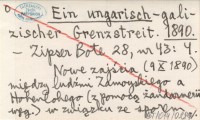 Ein ungarisch-gali-
zischer Grenzstreit. 1890.
— Zipser Bote 28, nr 43: 4.
Nowe zajścia (9 X 1890)
między ludźmi Zamoyskiego a
Hohenlohego (z pomocą żandarmerii
węg.) w związku ze sporem